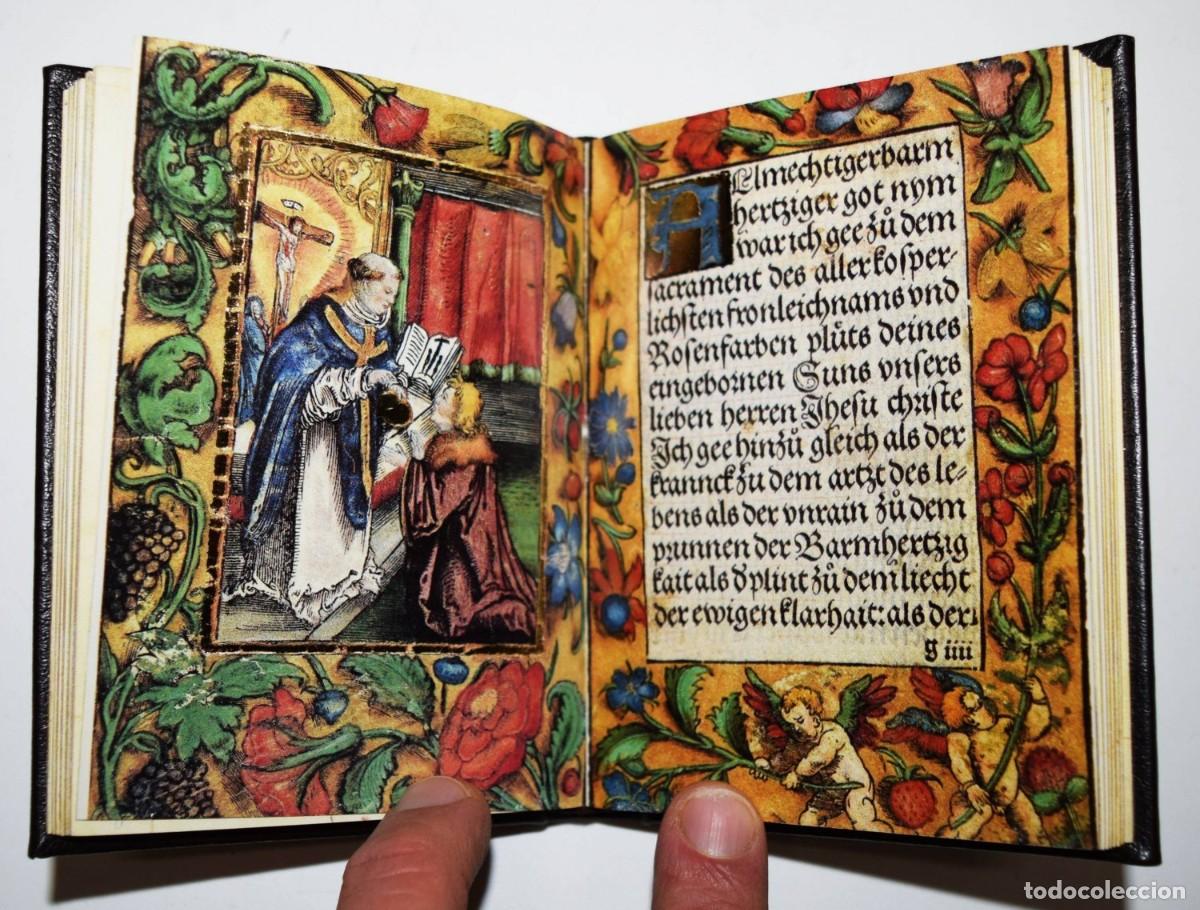 Almechtiger barm
hertziger got nym
war ich gee zů dem
sacrament des allerkosper-
lichsten fronleichnams vnd
Rosenfarben plůts deines
eingebornen Suns vnsers
lieben herren Jhesu christe
Ich gee hinzů gleich als der
kranck zů dem artzt des le-
bens als der vnrain zů dem
prunnen der Barmhertzig
kait als d plint zů dem liecht
der ewigen klarhait: als der
g iiii
todocoleccion